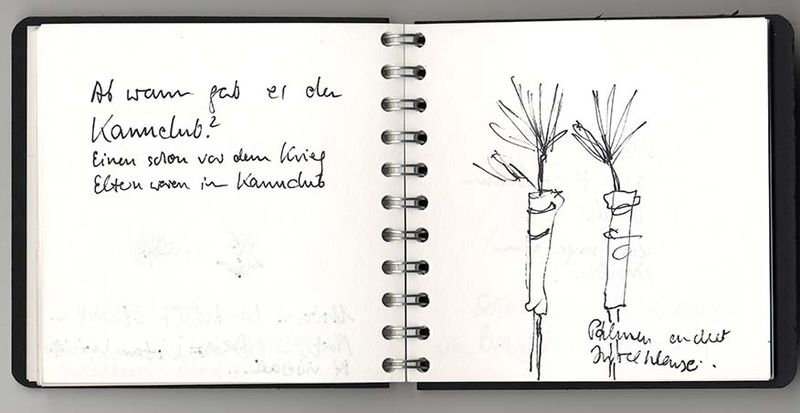 Ab wann gab es den
Kannclub?
Einen schon vor dem Krieg
Eltern waren im Kannclub
Palmen an der